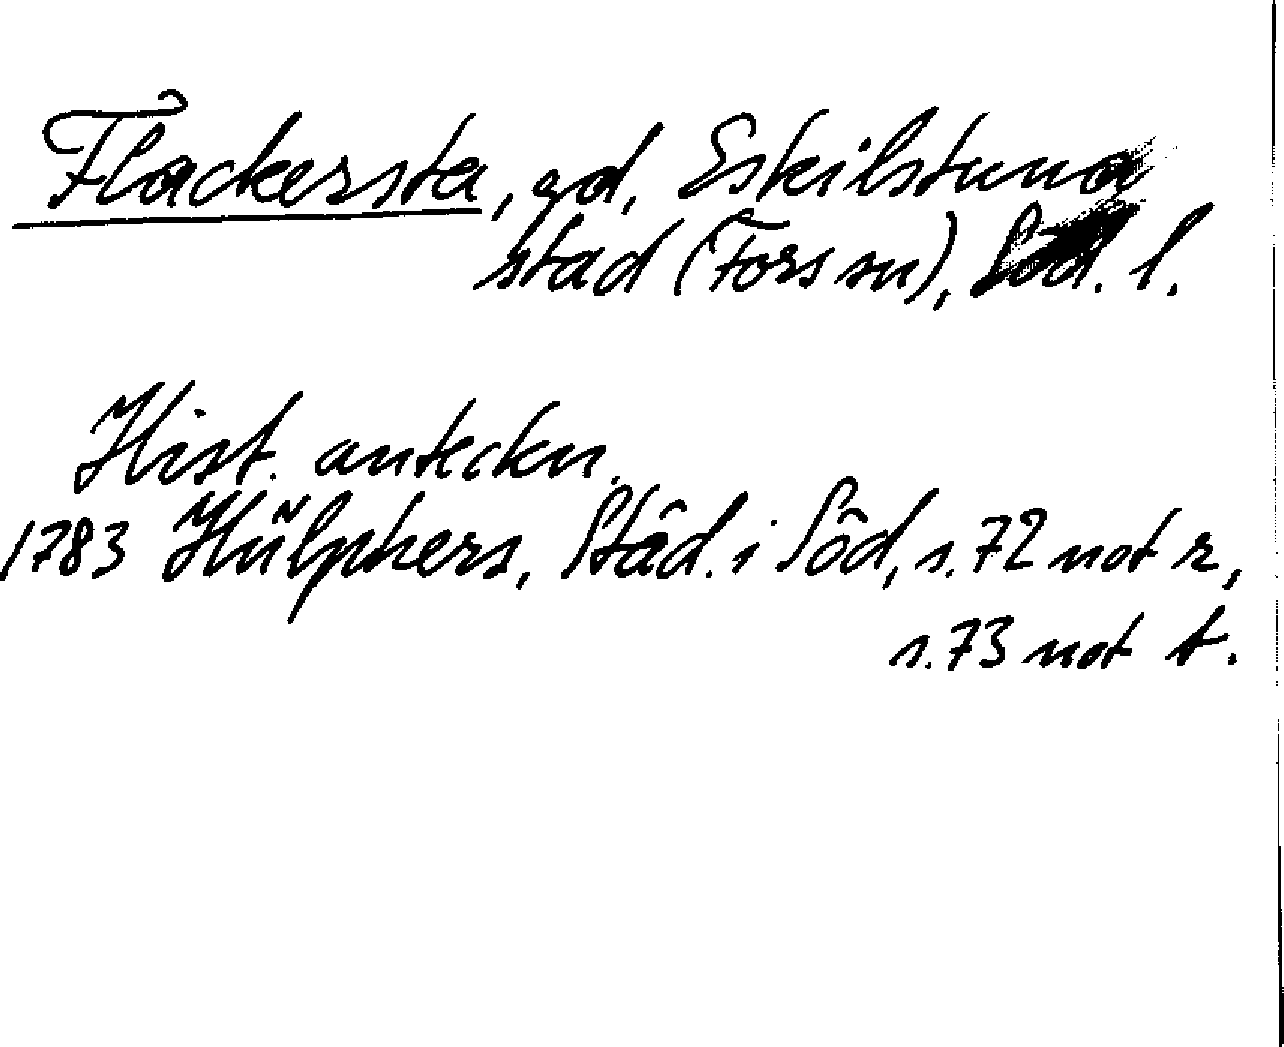 Flackersta, gd, Eskilstuna
stad (Fors sn), Söd. l.
Hist. anteckn.
1783 Hülphers, Städ. i Söd, s. 72 not r,
s. 73 not t.